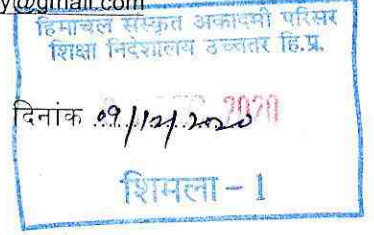 y@gmail.com
हिमाचल संस्कृत अकादमी परिसर
शिक्षा निदेशालय उच्चतर हि.प्र.
दिनांक 09/12/2020
शिमला - 1